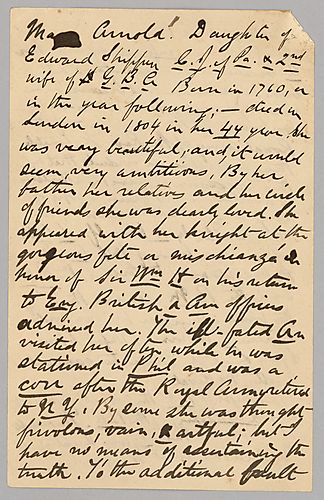 Arnold! Daughter of
Edward Shippen C. J. of Pa. & 2nd
wife of G. B. A. Born in 1760, or
in the year following; — died in
London in 1804 in her 44 year. She
was very beautiful, and, it would
seem, very ambitious, By her
father her relatives and her circle
of friends she was dearly loved. She
appeared with her knight at the
gorgeous fete or mischianza in
honor of Sir Wm H on his return
to Eng. British & Am officers
admired her. The ill-fated An
visited her often while he was
stationed in Phil and was a
corr after the Royal Army retired
to N Y. By some she was thought
frivolous, vain, & artful; but I
have no means of ascertaining the
truth. To the additional fault